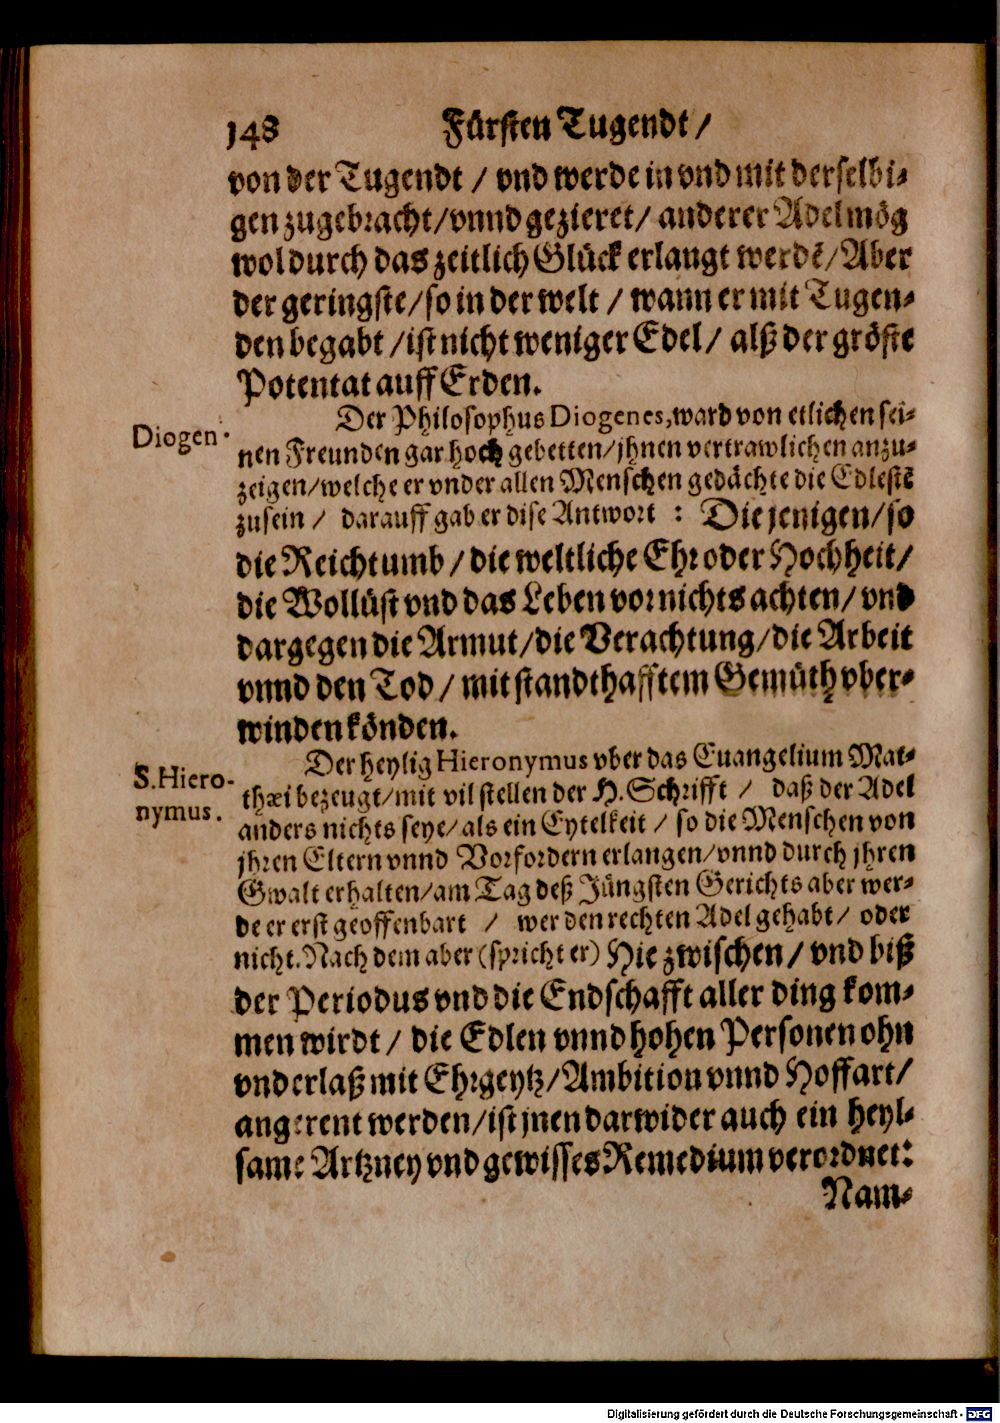 148 Fürsten Tugendt /
von der Tugendt / vnd werde in vnd mit derselbi-
gen zugebracht/vnnd gezieret/ anderer Adel mög
wol durch das zeitlich Glück erlangt werdē/Aber
der geringste/so in der welt / wann er mit Tugen-
den begabt /ist nicht weniger Edel/ alß der gröste
Potentat auff Erden.
Der Philosophus Diogenes,ward von etlichen sei-
Diogen.
nen Freunden gar hoch gebetten/jhnen vertrawlichen anzu-
zeigen/welche er vnder allen Menschen gedächte die Edlestē
zusein / darauff gab er dise Antwort : Die jenigen/so
die Reichtumb / die weltliche Ehr oder Hochheit/
die Wollüst vnd das Leben vor nichts achten/ vnd
dargegen die Armut/die Verachtung/die Arbeit
vnnd den Tod / mit standthafftem Gemüth vber-
winden könden.
Der heylig Hieronymus vber das Euangelium Mat-
S.Hiero-
nymus.
thæi bezeugt/mit vil stellen der H. Schrifft / daß der Adel
anders nichts seye/als ein Eytelkeit / so die Menschen von
jhren Eltern vnnd Vorfordern erlangen/vnnd durch jhren
Gwalt erhalten/am Tag deß Jüngsten Gerichts aber wer-
de er erst geoffenbart / wer den rechten Adel gehabt/ oder
nicht. Nach dem aber (spricht er) Hie zwischen / vnd biß
der Periodus vnd die Endschafft aller ding kom-
men wirdt / die Edlen vnnd hohen Personen ohn
vnderlaß mit Ehrgeytz/Ambition vnnd Hoffart/
angerent werden/ist jnen darwider auch ein heyl-
same Artzney vnd gewisses Remedium verordnet:
Nam-
Digitalisierung gefördert durch die Deutsche Forschungsgemeinschaft - DFG